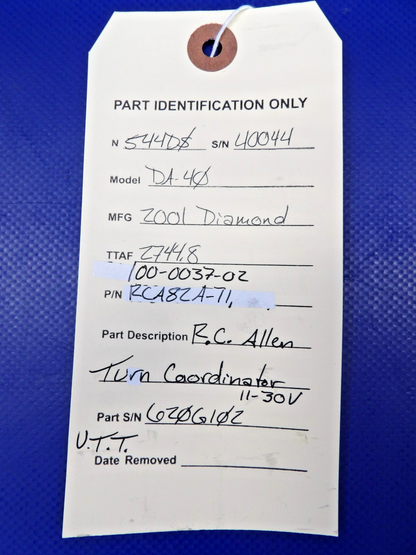 PART IDENTIFICATION ONLY
N 544DS S/N 40044
Model DA-4Ø
MFG 2001 Diamond
TTAF 2744.8
100-0037-02
P/N RCA82A-11,
Part Description R.C. Allen
Turn Coordinator
11-30V
Part S/N G2ØG102
U.T.T.
Date Removed